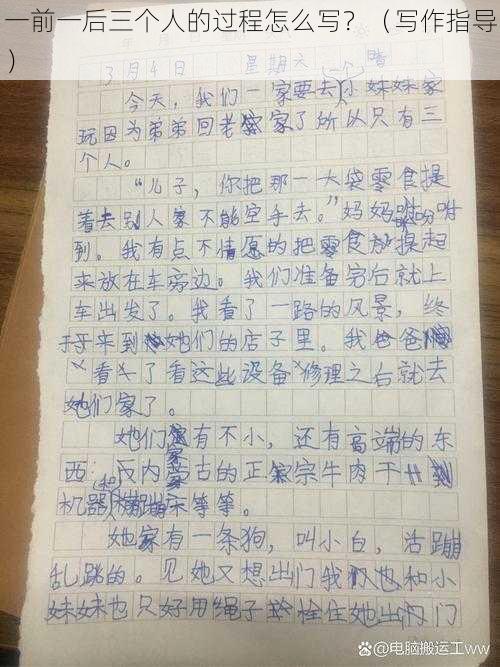 一前一后三个人的过程怎么写？（写作指导
）
3月4日 星期六 晴
今天，我们一家要去一个小妹妹家
玩因为弟弟回老家了所以只有三
个人。
“儿子，你把那一大袋零食提
着去别人家不能空手去。”妈妈吩咐
到。我有点不情愿的把零食提起
来放在车旁边。我们准备完后就上
车出发了。我看了一路的风景，终
于来到她们的店子里。我爸爸
看了看这些设备修理之后就去
她们家了。
她们家有不小，还有高端的东
西：内蒙古的正宗牛肉干
机器和蹦蹦床等等。
她家有一条狗，叫小白，活蹦
乱跳的。见她又想出们我也和小
妹妹也只好用绳子拴住她出门
@电脑搬运工ww